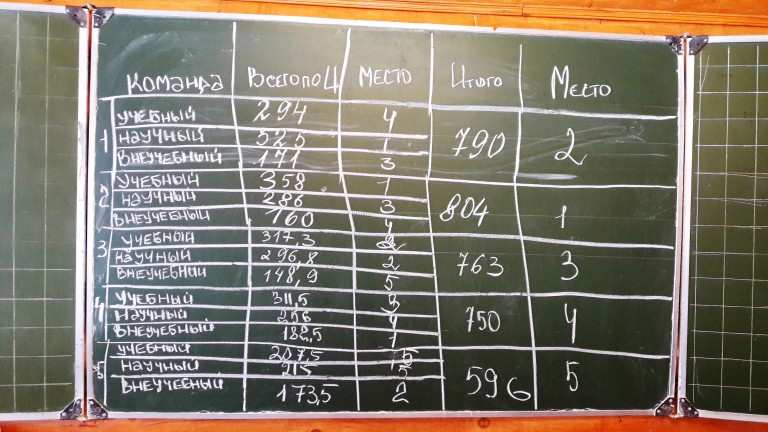 КОМАНДА ВСЕГО ПО Ц МЕСТО ИТОГО МЕСТО
УЧЕБНЫЙ 294 4
1 НАУЧНЫЙ 325 1 790 2
ВНЕУЧЕБНЫЙ 171 3
УЧЕБНЫЙ 358 1
2 НАУЧНЫЙ 286 3 804 1
ВНЕУЧЕБНЫЙ 160 4
УЧЕБНЫЙ 317,3 2
3 НАУЧНЫЙ 296,8 2 763 3
ВНЕУЧЕБНЫЙ 148,9 5
УЧЕБНЫЙ 311,5 3
4 НАУЧНЫЙ 256 4 750 4
ВНЕУЧЕБНЫЙ 182,5 1
УЧЕБНЫЙ 207,5 5
5 НАУЧНЫЙ 215 5 596 5
ВНЕУЧЕБНЫЙ 173,5 2